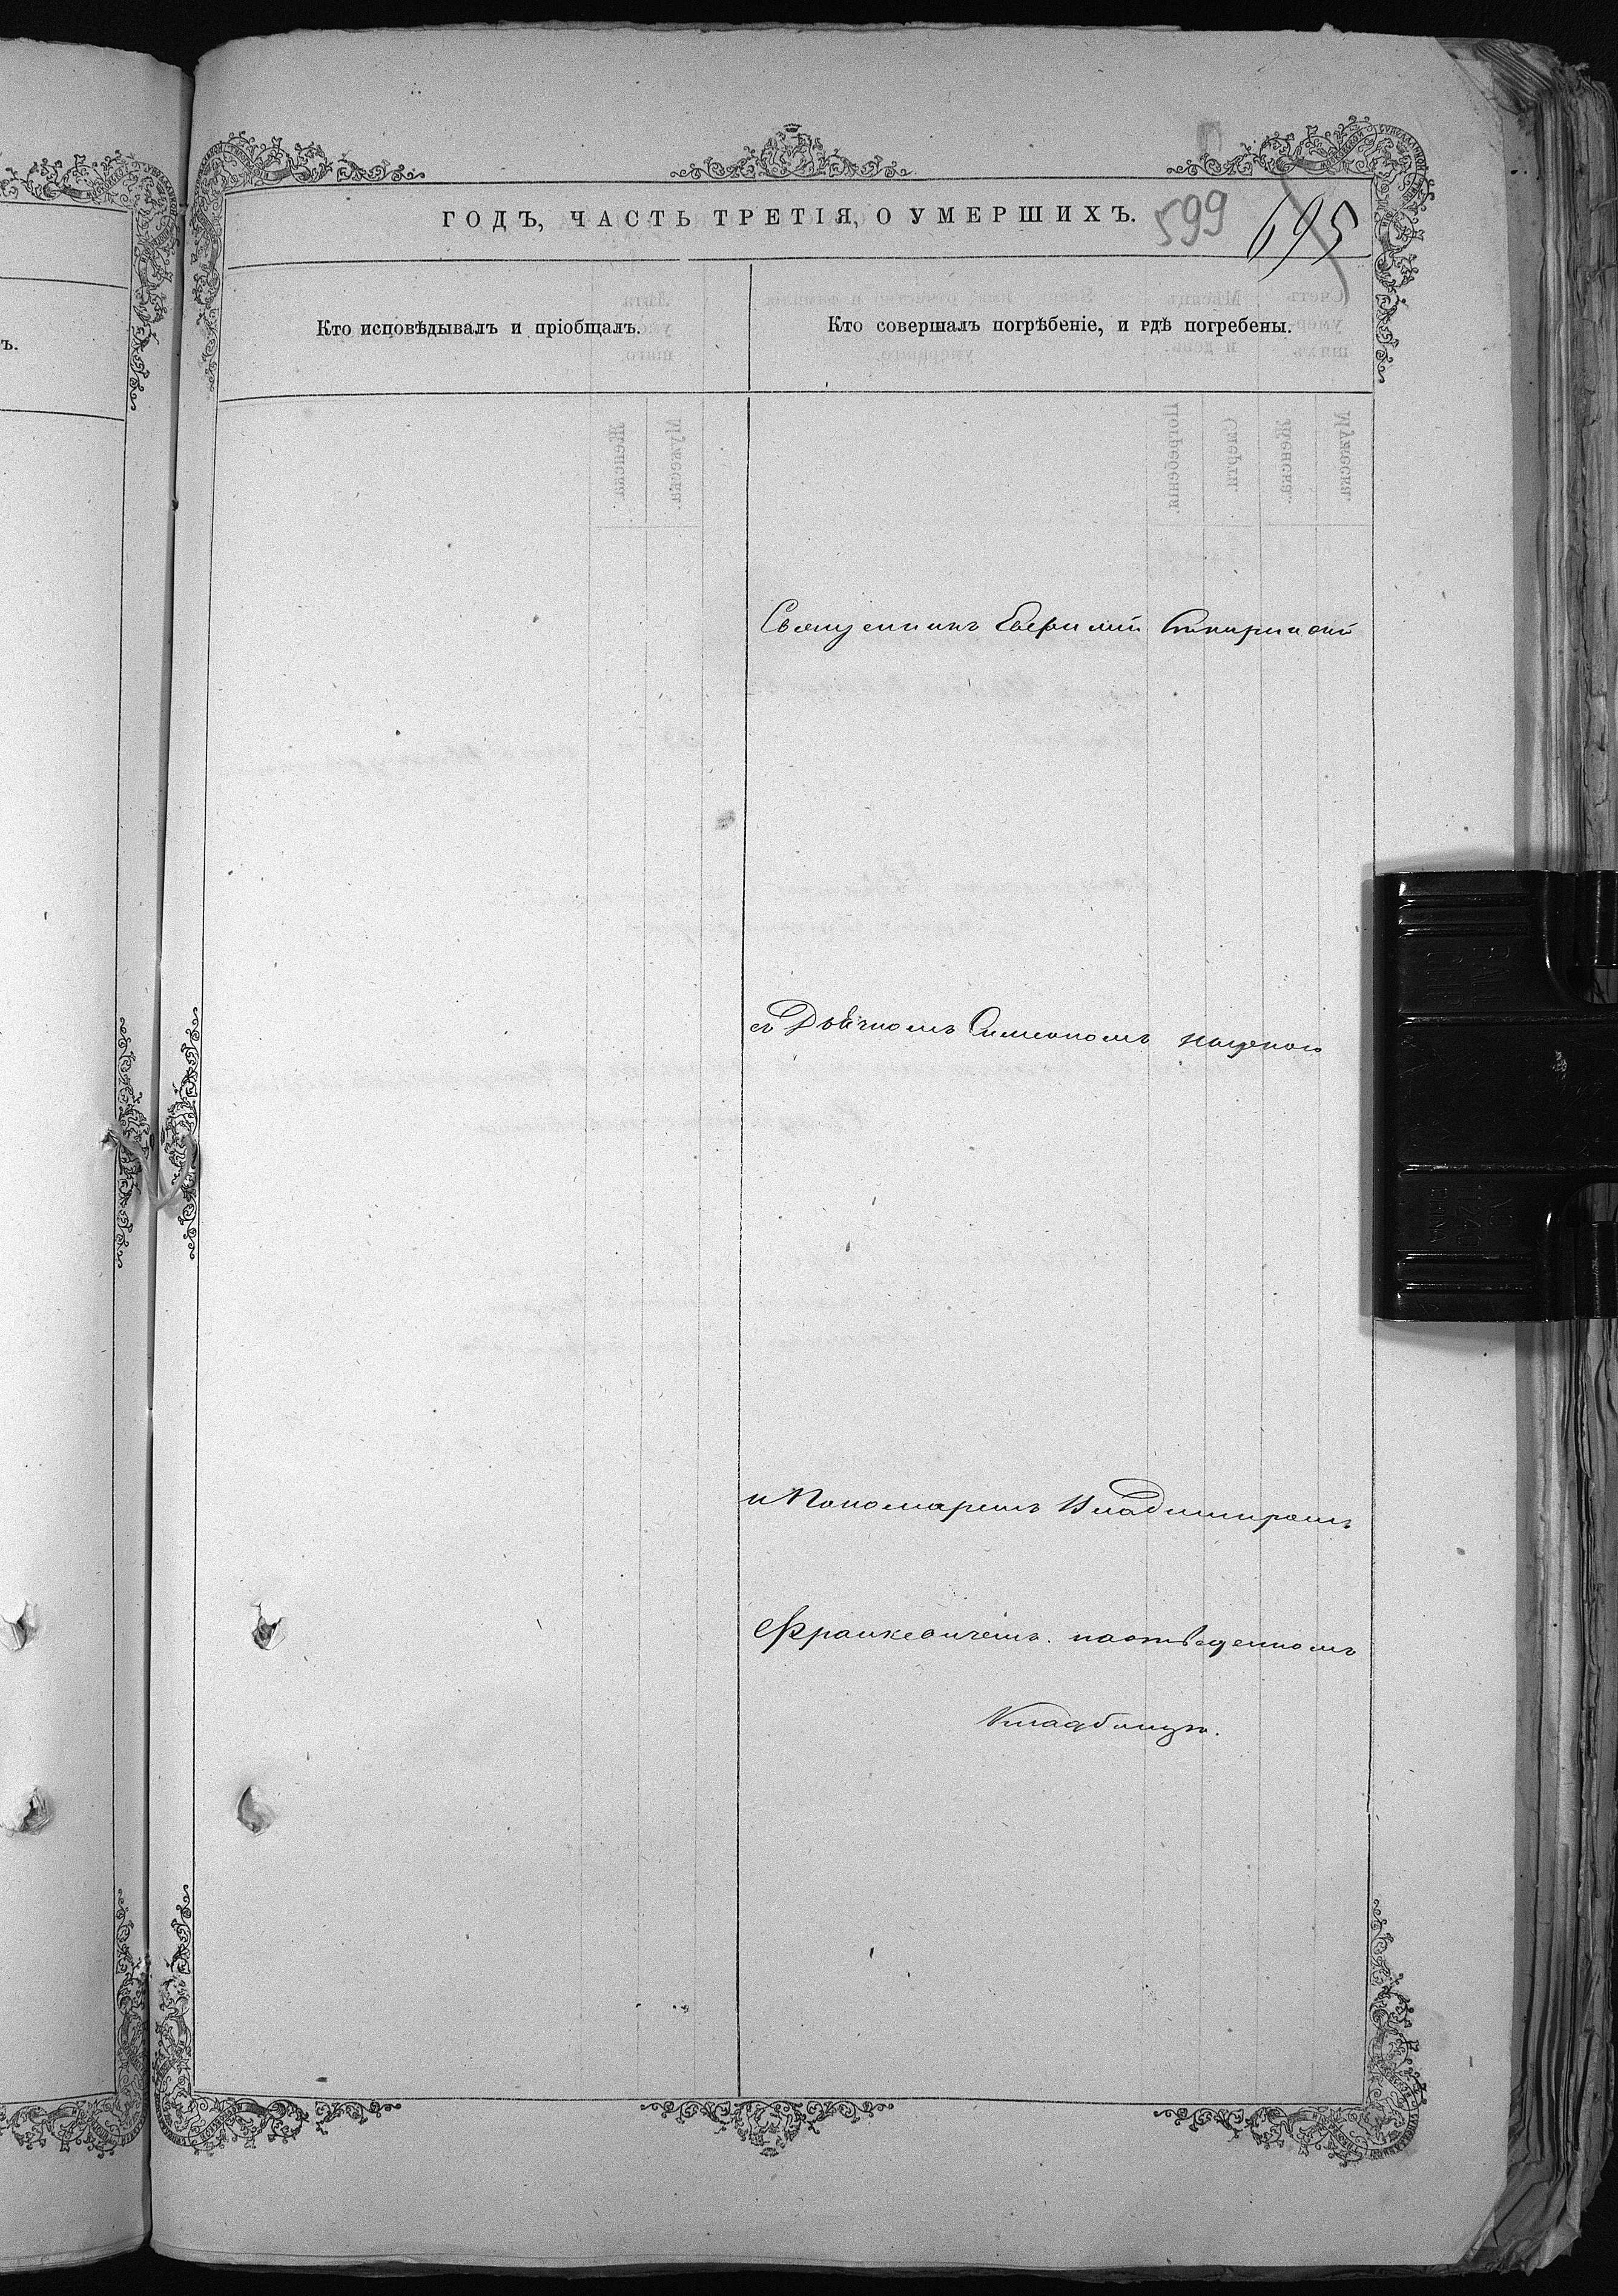 ГОДЪ, ЧАСТЬ ТРЕТІЯ, О УМЕРШИХЪ.
599 695
Кто исповѣдывалъ и пріобщалъ.
Кто совершалъ погрѣбеніе, и гдѣ погребены.
ъ.
Священникъ Евфимій
съ Дьячкомъ Симеономъ
и Пономаремъ Владимиромъ
Франкевичемъ. на отведенномъ
Кладбищѣ.